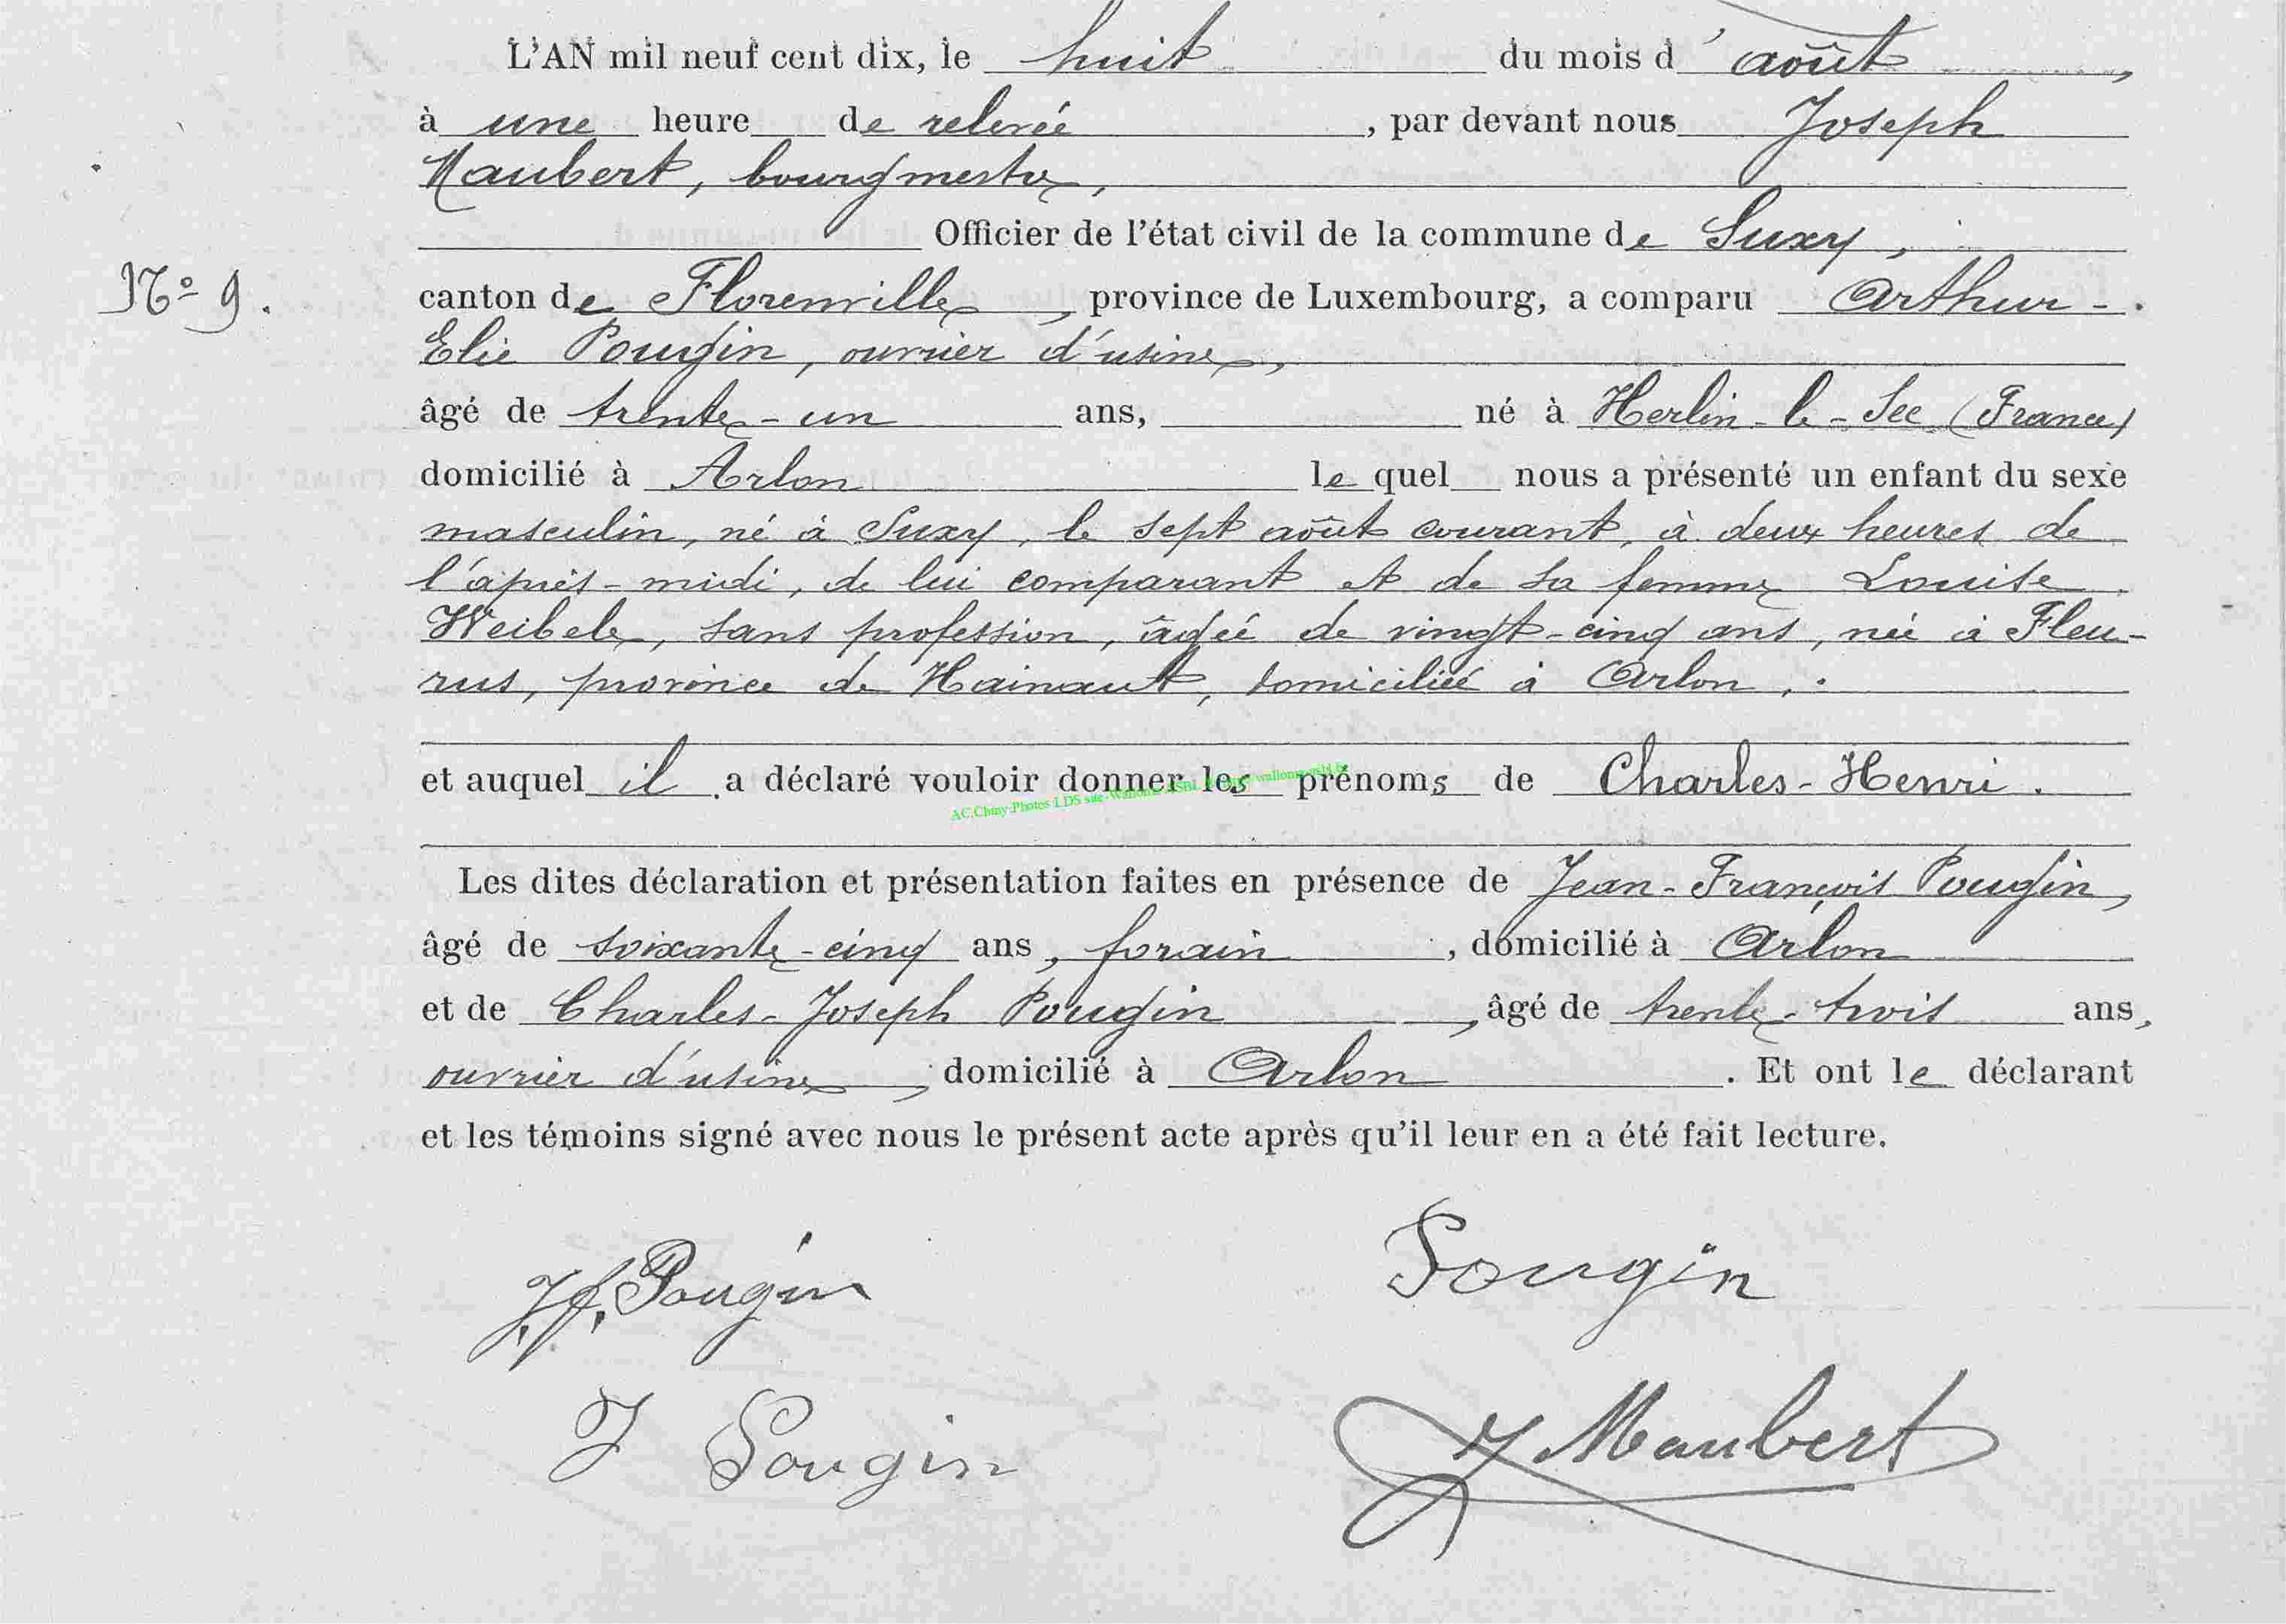 L'AN mil neuf cent dix, le huit du mois d'août,
à une heure de relevée, par devant nous Joseph
Maubert, bourgmestre,
Officier de l'état civil de la commune de Suxy,
N° 9.
canton de Florenville, province de Luxembourg, a comparu Arthur-
Elie Pougin, ouvrier d'usine,
âgé de trente-un ans, né à Herlin-le-Sec (France)
domicilié à Arlon lequel nous a présenté un enfant du sexe
masculin, né à Suxy, le sept août courant, à deux heures de
l'après-midi, de lui comparant et de sa femme Louise
Weibele, sans profession, âgée de vingt-cinq ans, née à Fleu-
rus, province de Hainaut, domiciliée à Arlon,
et auquel il a déclaré vouloir donner les prénoms de Charles-Henri.
AC.Chiny.Photos LDS site
Les dites déclaration et présentation faites en présence de Jean-François Pougin,
âgé de soixante-cinq ans, forain, domicilié à Arlon
et de Charles-Joseph Pougin, âgé de trente-trois ans,
ouvrier d'usine, domicilié à Arlon. Et ont le déclarant
et les témoins signé avec nous le présent acte après qu'il leur en a été fait lecture.
J.f. Pougin Pougin
J Pougin J Maubert